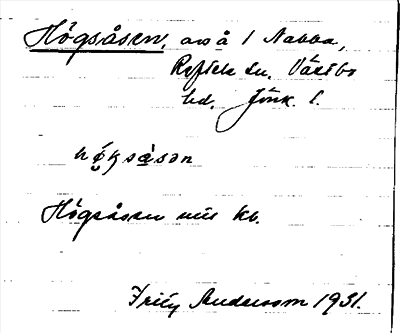 Högsåsen, avs å 1 Nabba,
Reftele sn. Västbo
hd. Jönk. l.
hǿksåsən
Högsåsen kb.
Fritz Andersson 1931.